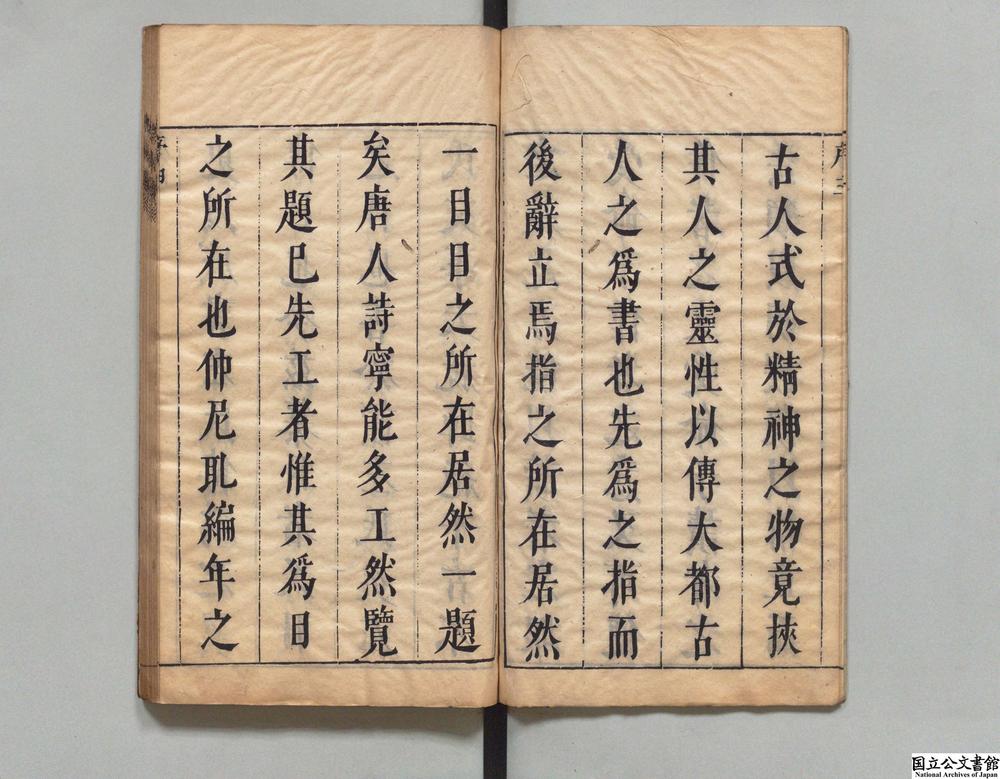 古人式於精神之物竟挾
其人之靈性以傳大都古
人之爲書也先爲之指而
後辭立焉指之所在居然
一目目之所在居然一題
矣唐人詩寧能多工然覽
其題已先工者惟其爲目
之所在也仲尼耴編年之
国立公文書館
National Archives of Japan